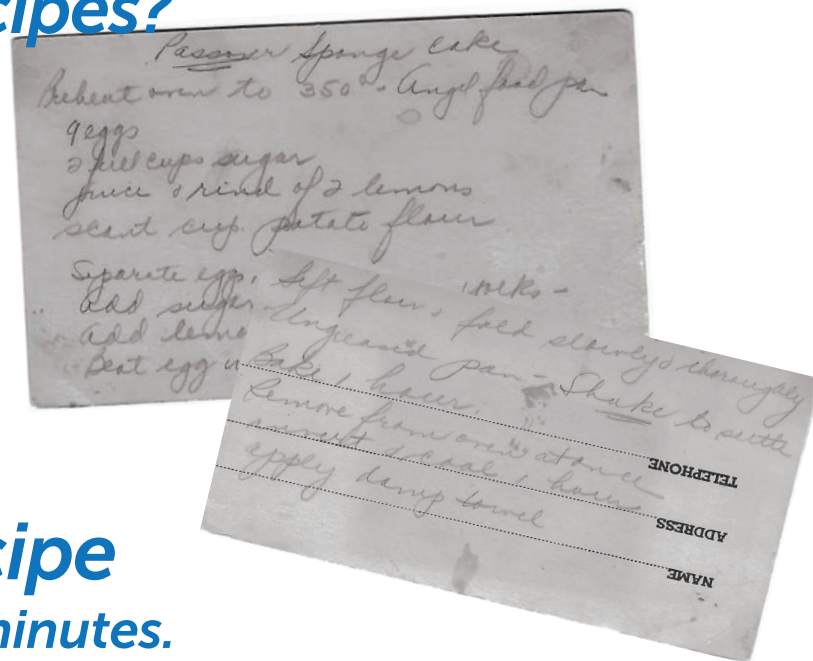 cipes?
Passover Sponge Cake
Preheat oven to 350° - Angel food pan
9 eggs
2 full cups sugar
juice & rind of 2 lemons
scant cup potato flour
Separate eggs.
add sugar
add lemo
Beat egg
Sift flour & fold slowly & thoroughly
Ungreased pan - Shake to settle
Bake 1 hour.
Remove from oven at once
invert & cool 1 hour
apply damp towel
TELEPHONE
ADDRESS
NAME
cipe
minutes.